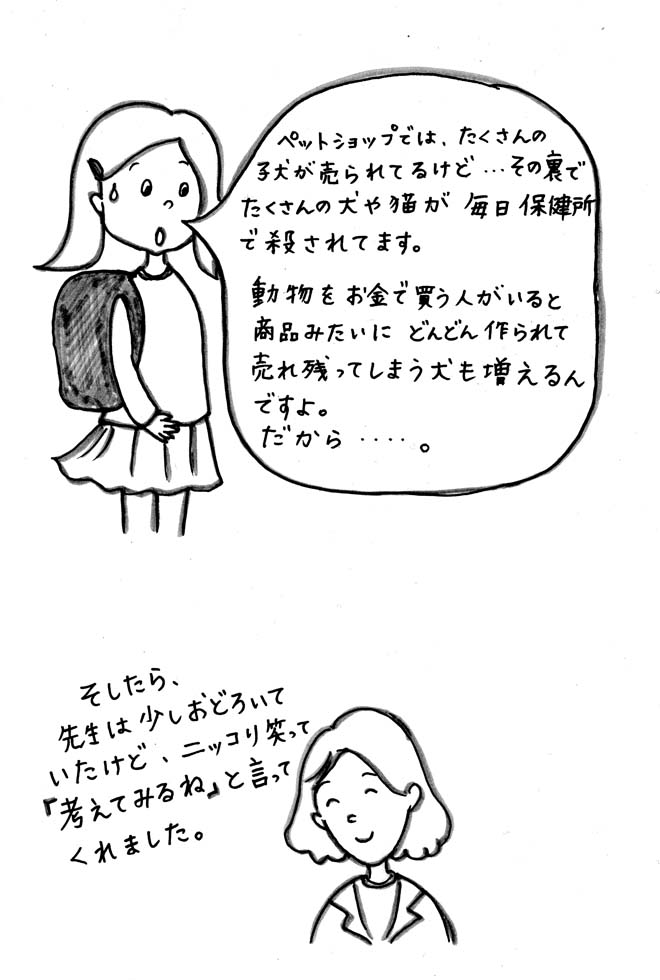 ペットショップでは、たくさんの
子犬が売られてるけど…その裏で
たくさんの犬や猫が 毎日保健所
で殺されてます。
動物をお金で買う人がいると
商品みたいに どんどん作られて
売れ残ってしまう犬も増えるん
ですよ。
だから‥‥。
そしたら、
先生は少しおどろいて
いたけど、ニッコリ笑って
『考えてみるね』と言って
くれました。